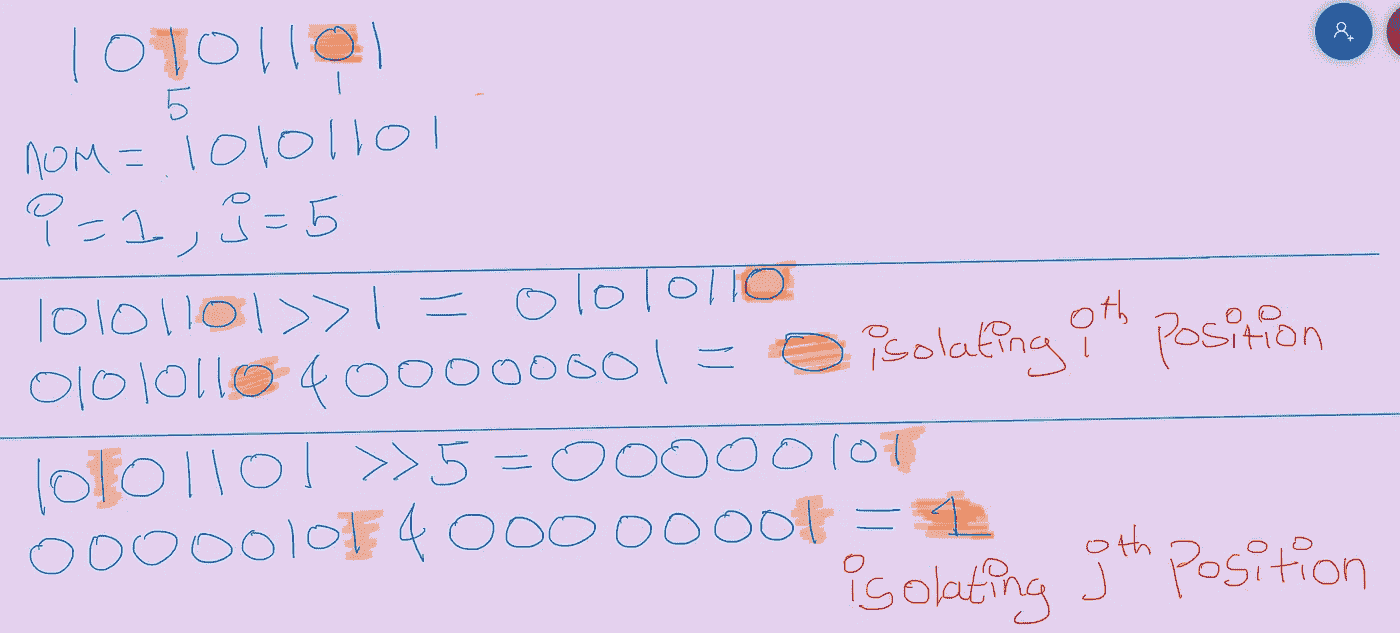 10101101
5 1
NOM = 10101101
i = 1, j = 5
10101101 >> 1 = 01010110
01010110 & 00000001 = 0 isolating ith position
10101101 >> 5 = 00000101
00000101 & 00000001 = 1
isolating jth position